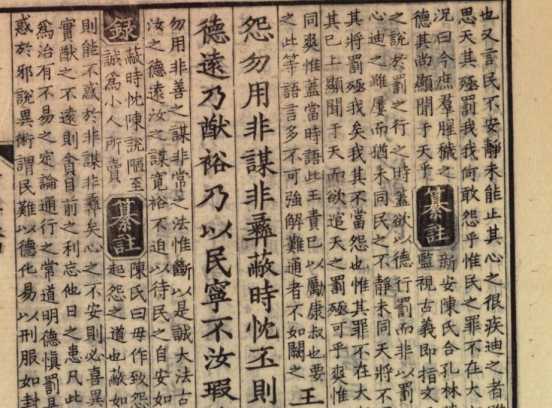 也又言民不安靜未能止其心之很疾迪之者雖
思天其殛罰我我何敢怨乎惟民之罪不在大
況曰今庶羣腥穢之
德其尚顯聞于天乎
纂註
新安陳氏合孔林
監視古義即指文
之說於罰之行之時蓋欲以德行罰而非以罰
心迪之雖屢而猶未同民之不靜未同天將不
其將罰殛我矣我其不當怨也惟其罪不在大
其已上顯聞于天而欲逭天之罰殛可乎爽惟
同爽惟蓋當時語此王責已以厲康叔也要
之此等語言多不可強解難通者不如闕之
王
怨勿用非謀非彝蔽時忱丕則
德遠乃猷裕乃以民寧不汝瑕
勿用非善之謀非常之法惟斷以是誠大法古
汝之德遠汝之謀寬裕不迫以待民之自安如
錄
蔽時忱陳說陋至
誠為小人所賣
纂註
陳氏曰毋作致怨
起怨之道也蔽如
則能不惑於非謀非彝矣心之不安則必喜異
實猷之不遠則貪目前之利忘他日之患凡此
為治有不易之定論通行之常道明德慎罰是
惑於邪說異術謂民難以德化易以刑服如封